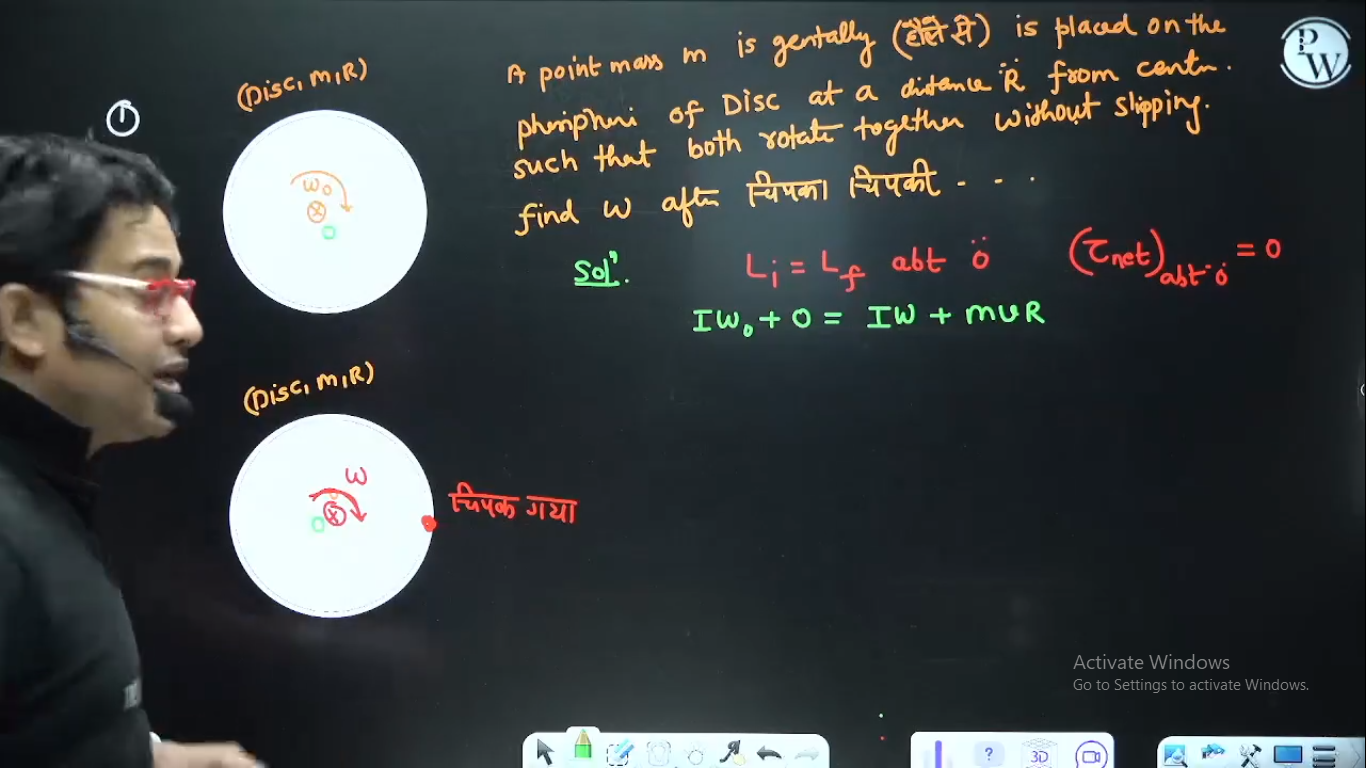 (Disc, m, R)
ω₀
A point mass m is gentally (हौले से) is placed on the
pheripheri of Disc at a distance R̈ from centr.
such that both rotate together without slipping.
find ω after चिपका चिपकी - - .
Solⁿ.
Lᵢ = L_f abt ö
(τnet)abt ö = 0
Iω₀ + 0 = Iω + mvR
(Disc, m, R)
ω
चिपक गया
PW
Activate Windows
Go to Settings to activate Windows.
?
3D